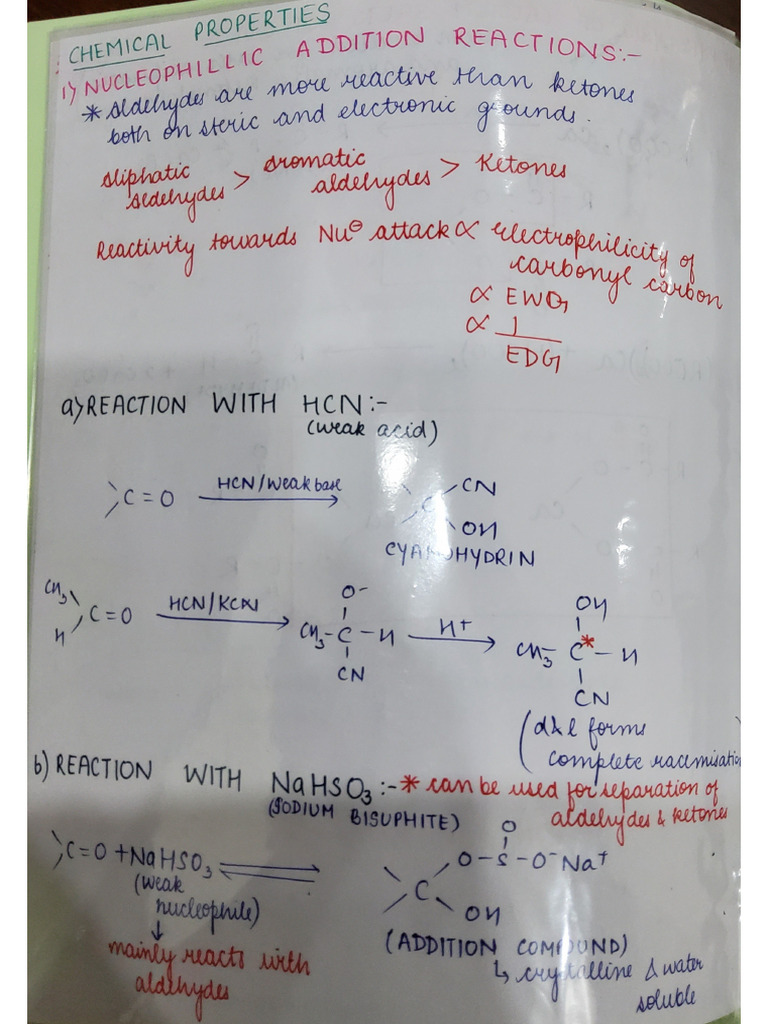 CHEMICAL PROPERTIES
1) NUCLEOPHILLIC ADDITION REACTIONS:-
* Aldehydes are more reactive than ketones
both on steric and electronic grounds.
Aliphatic aedehydes > Aromatic aldehydes > Ketones
Reactivity towards Nu⊖ attack ∝ electrophilicity of
carbonyl carbon
∝ EWG
∝ 1
EDG
a) REACTION WITH HCN:-
(weak acid)
C=O HCN/Weak base C CN
OH
CYANOHYDRIN
CH3 H C=O HCN/KCN O-
CH3-C-H H+ OH
CN CH3-C*-H
CN
(d & l forms
complete racemisation
b) REACTION WITH NaHSO3:- * can be used for separation of
(SODIUM BISUPHITE) aldehydes & ketones
C=O + NaHSO3 O
(weak O-S-O-Na+
nucleophile) C
↓ OH
mainly reacts with (ADDITION COMPOUND)
aldehydes ↳ crystalline & water
soluble